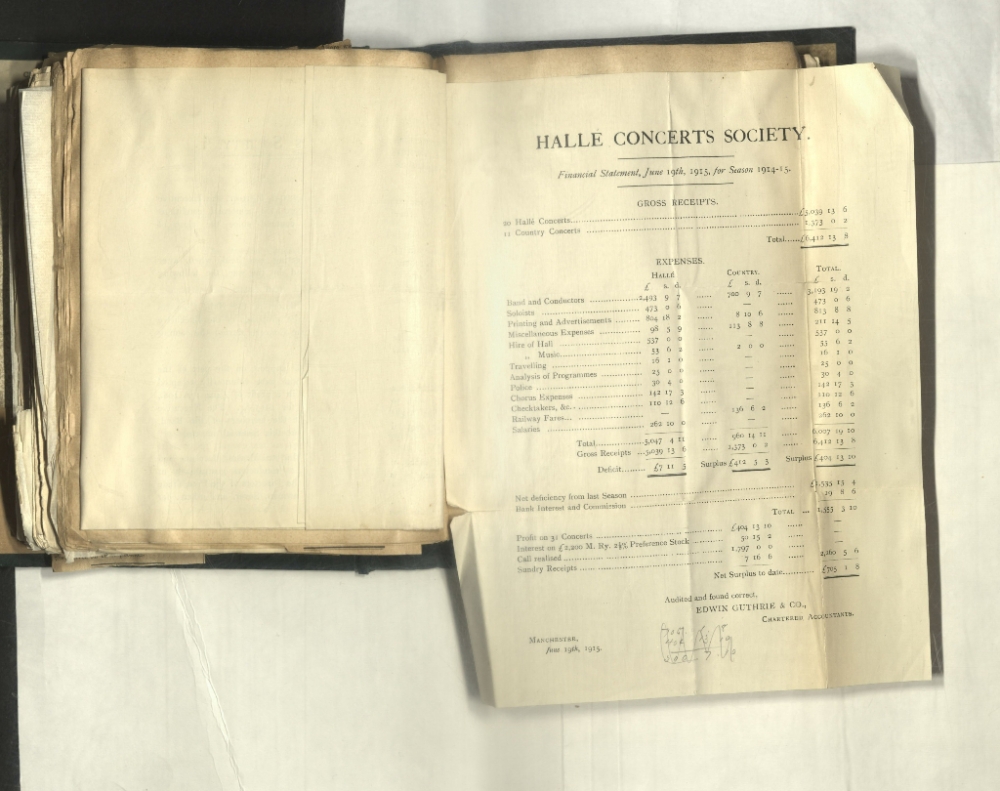 HALLÉ CONCERTS SOCIETY.
Financial Statement, June 19th, 1915, for Season 1914-15.
GROSS RECEIPTS.
20 Hallé Concerts £5,039 13 6
11 Country Concerts 1,373 0 2
Total £6,412 13 8
EXPENSES.
HALLÉ COUNTRY. TOTAL.
£ s. d. £ s. d. £ s. d.
Band and Conductors 2,493 9 7 700 9 7 3,193 19 2
Soloists 473 0 6 — 473 0 6
Printing and Advertisements 804 18 2 8 10 6 813 8 8
Miscellaneous Expenses 98 5 9 113 8 8 211 14 5
Hire of Hall 537 0 0 — 537 0 0
„ Music 53 6 2 2 0 0 55 6 2
Travelling 16 1 0 — 16 1 0
Analysis of Programmes 25 0 0 — 25 0 0
Police 30 4 0 — 30 4 0
Chorus Expenses 142 17 3 — 142 17 3
Checktakers, &c. 110 12 6 — 110 12 6
Railway Fares — 136 6 2 136 6 2
Salaries 262 10 0 — 262 10 0
Total 5,047 4 11 960 14 11 6,007 19 10
Gross Receipts 5,039 13 6 1,373 0 2 6,412 13 8
Deficit £7 11 5 Surplus £412 5 3 Surplus £404 13 10
Net deficiency from last Season £1,535 13 4
Bank Interest and Commission 19 8 6
TOTAL 1,555 3 10
Profit on 31 Concerts £404 13 10 —
Interest on £2,200 M. Ry. 2½% Preference Stock 50 15 2 —
Call realised 1,797 0 0 —
Sundry Receipts 7 16 6 2,260 5 6
Net Surplus to date £705 1 8
Audited and found correct,
EDWIN GUTHRIE & CO.,
CHARTERED ACCOUNTANTS.
MANCHESTER,
June 19th, 1915.